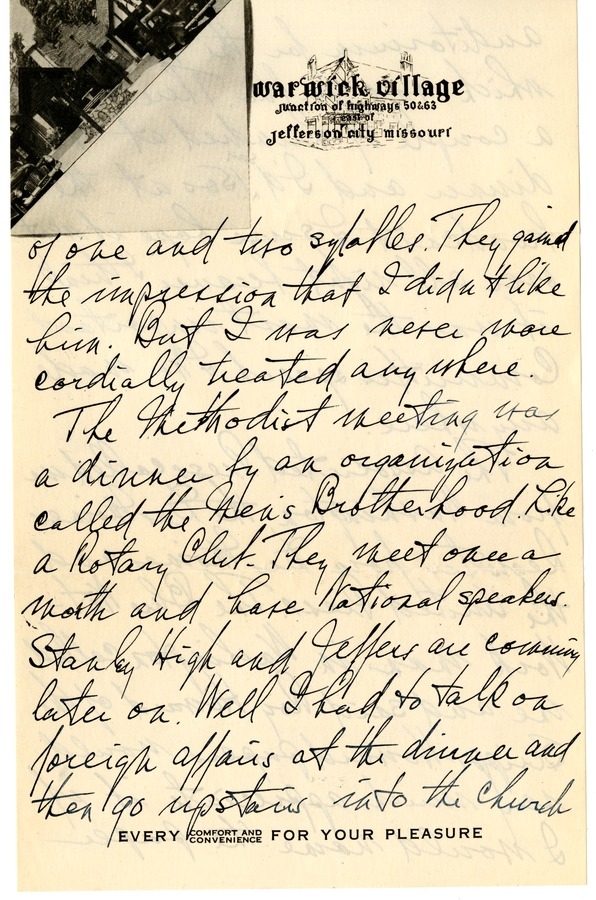 warwick village
junction of highways 50&63
east of
jefferson city missouri
of one and two sylables. They gained
the impression that I didn't like
him. But I was never more
cordially treated any where.
The Methodist meeting was
a dinner by an organization
called the Men's Brotherhood. Like
a Rotary Club. They meet once a
month and have National speakers.
Stanley High and Jeffers are comming
later on. Well I had to talk on
foreign affairs at the dinner and
then go upstairs into the church
EVERY COMFORT AND CONVENIENCE FOR YOUR PLEASURE